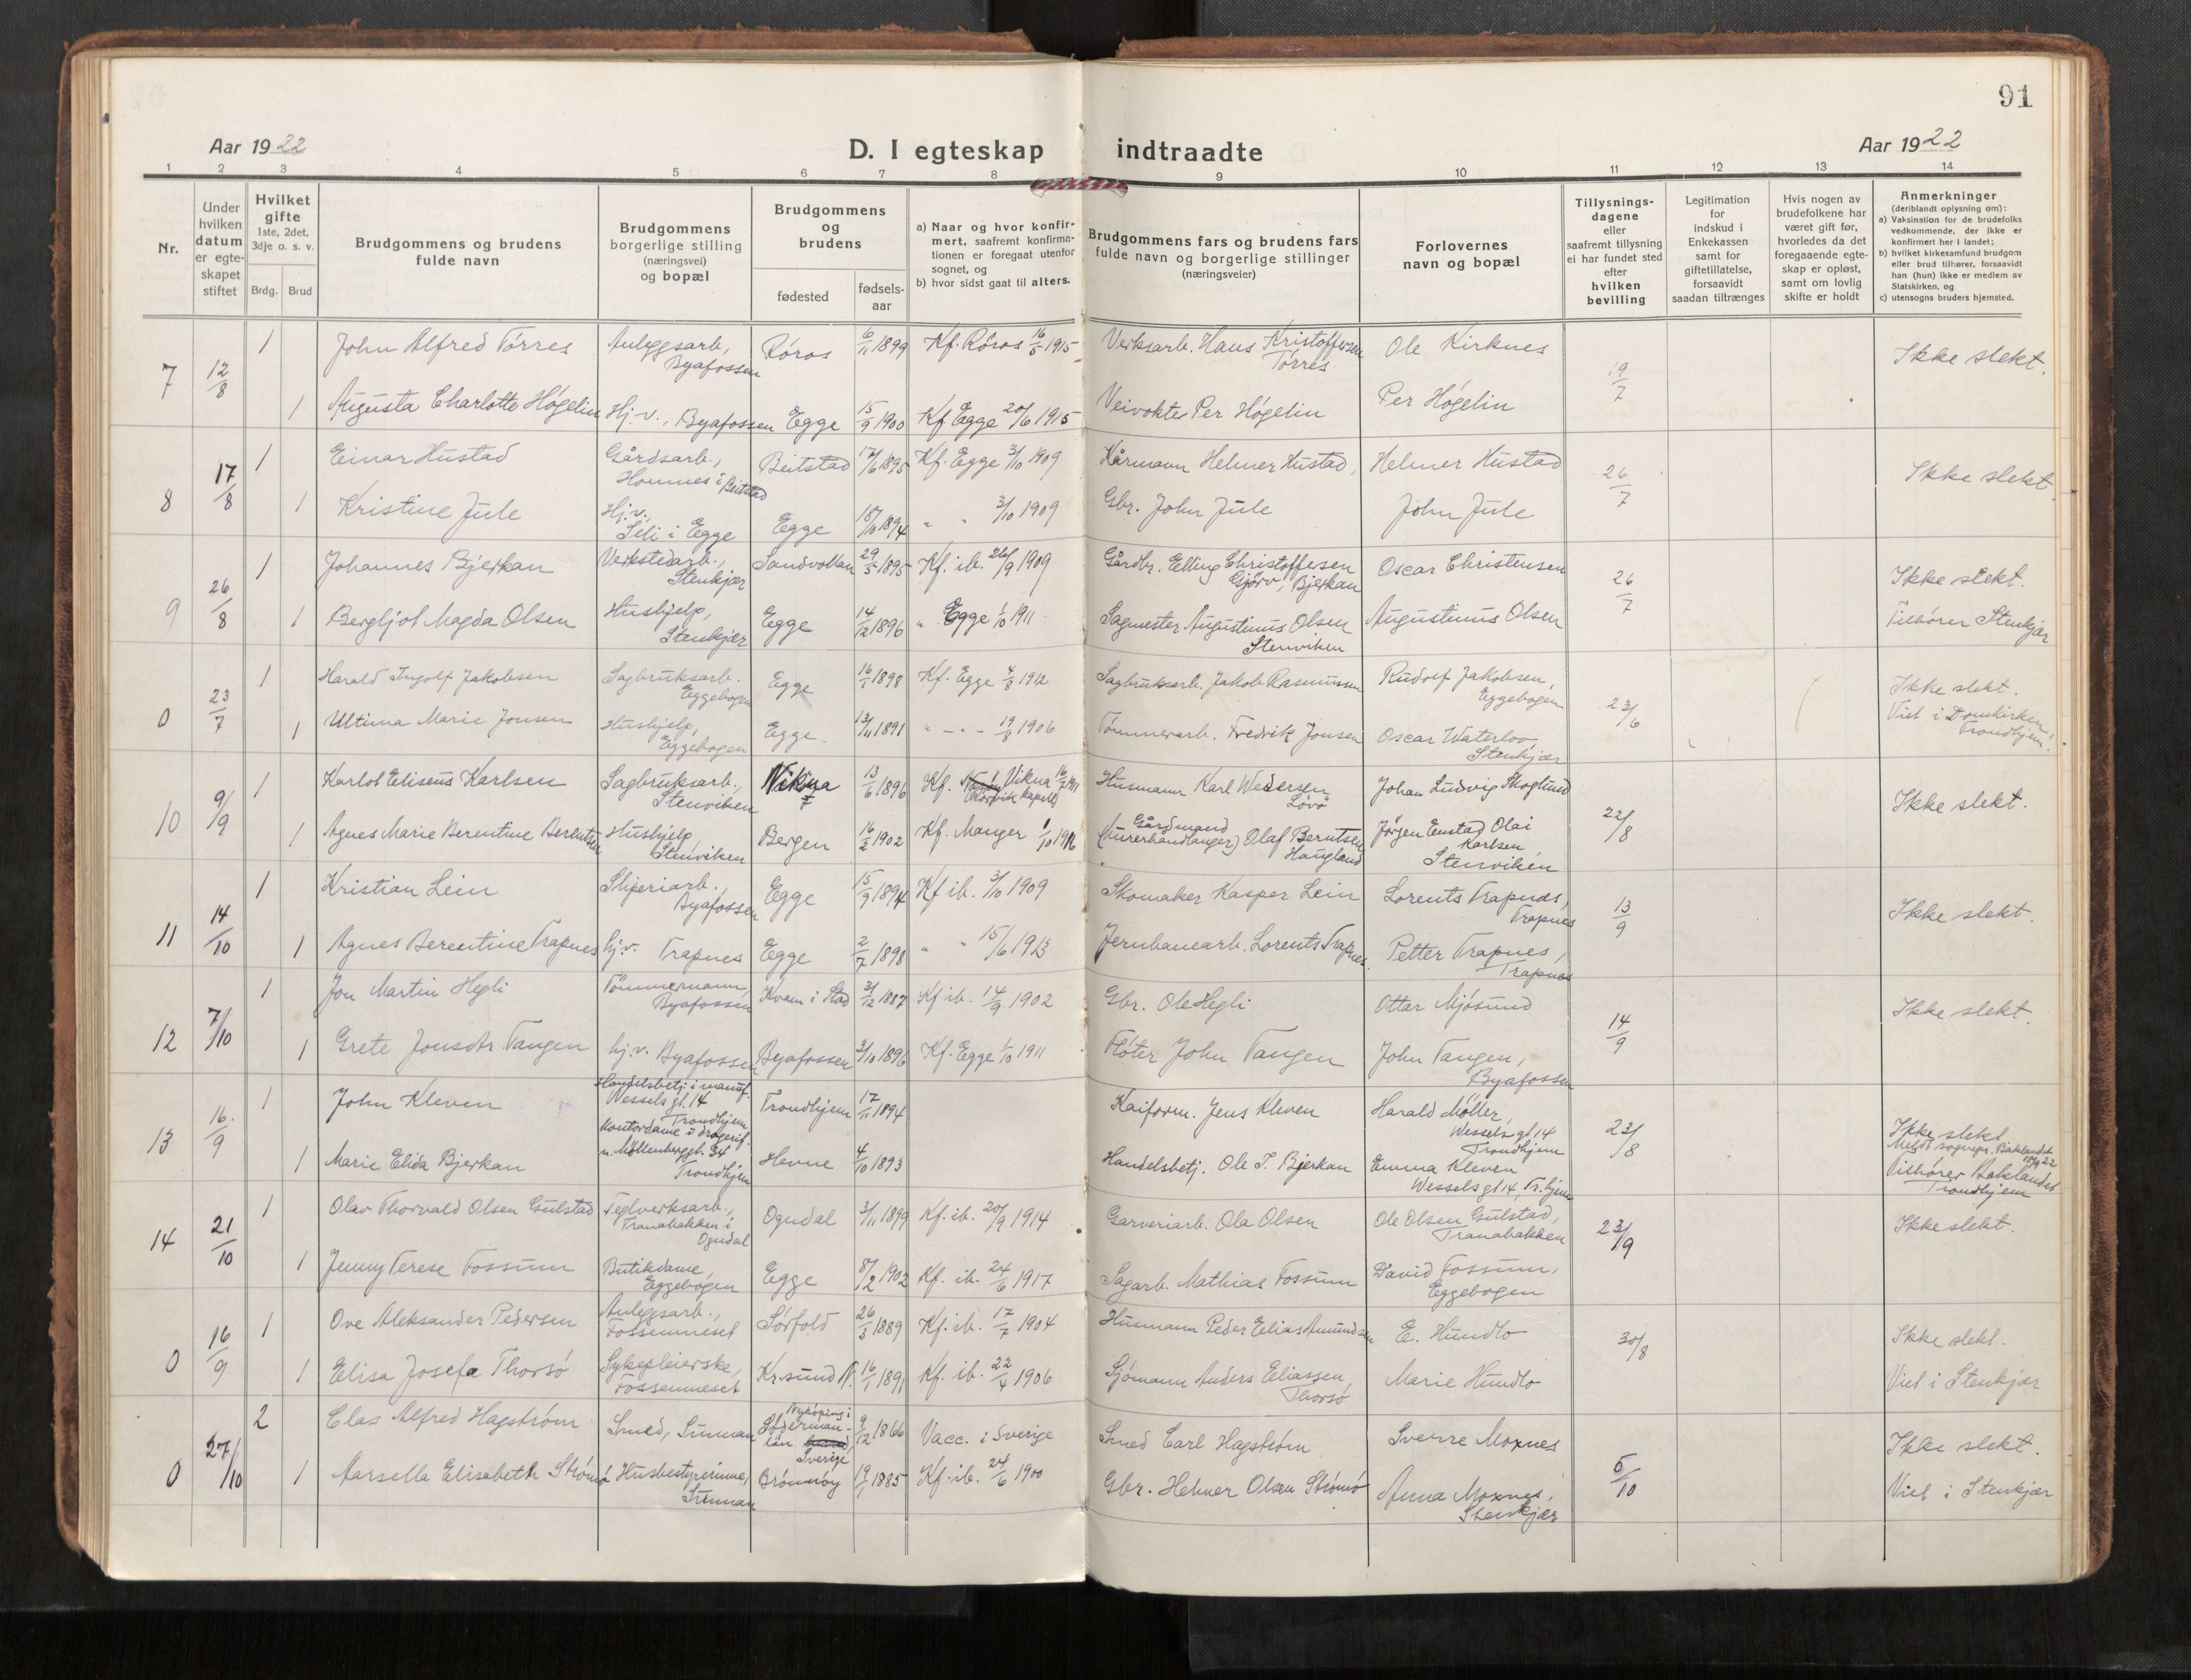 91
Aar 1922
D. I egteskap indtraadte
Aar 1922
1 2 3 4 5 6 7 8 9 10 11 12 13 14
Nr.
Under hvilken datum er egteskapet stiftet
Hvilket gifte 1ste, 2det, 3dje o. s. v.
Brdg. Brud
Brudgommens og brudens fulde navn
Brudgommens borgerlige stilling (næringsvei) og bopæl
Brudgommens og brudens
fødested
fødsels-aar
a) Naar og hvor konfirmert, saafremt konfirmationen er foregaat utenfor sognet, og
b) hvor sidst gaat til alters.
Brudgommens fars og brudens fars fulde navn og borgerlige stillinger (næringsveier)
Forlovernes navn og bopæl
Tillysningsdagene eller saafremt tillysning ei har fundet sted efter hvilken bevilling
Legitimation for indskud i Enkekassen samt for giftetillatelse, forsaavidt saadan tiltrænges
Hvis nogen av brudefolkene har været gift før, hvorledes da det foregaaende egteskap er opløst, samt om lovlig skifte er holdt
Anmerkninger (deriblandt oplysning om):
a) Vaksination for de brudefolks vedkommende, der ikke er konfirmert her i landet;
b) hvilket kirkesamfund brudgom eller brud tilhører, forsaavidt han (hun) ikke er medlem av Statskirken, og
c) utensogns bruders hjemsted.
7 12/8 1 John Alfred Tørres Anleggsarb., Byafossen Røros 6/11 1899 Kf. Røros 16/5 1915 Verksarb. Hans Kristoffersen Tørres Ole Kirknes 19/7 Ikke slekt.
1 Augusta Charlotte Høgelin Hj.v., Byafossen Egge 15/9 1900 Kf Egge 20/6 1915 Veivokter Per Høgelin Per Høgelin
8 17/8 1 Einar Hustad Gårdsarb., Hommes i Beitstad Beitstad 17/6 1895 Kf. Egge 3/10 1909 Kårmann Helmer Hustad, Helmer Hustad 26/7 Ikke slekt.
1 Kristine Jule Hj.v. Seli i Egge Egge 18/10 1894 " " 3/10 1909 Gbr. John Jule John Jule
9 26/8 1 Johannes Bjerkan Verkstedarb., Stenkjær Sandvollan 29/5 1895 Kf. ib. 26/9 1909 Gårdbr. Elling Christoffersen Gjørv, Bjerkan Oscar Christensen 26/7 Ikke slekt.
1 Bergljot Magda Olsen Hushjelp, Stenkjær Egge 14/12 1896 " Egge 1/10 1911 Sagmester Augustinus Olsen Stenviken Augustinus Olsen Tilhører Stenkjær
0 23/7 1 Harald Ingolf Jakobsen Sagbruksarb. Eggebogen Egge 16/1 1898 Kf. Egge 4/8 1912 Sagbruksarb. Jakob Rasmussen Rudolf Jakobsen, Eggebogen 23/6 Ikke slekt.
1 Ultima Marie Jonsen Hushjelp, Eggebogen Egge. 13/11 1891 " - " - 19/8 1906 Tømmerarb. Fredrik Jonsen Oscar Waterloo, Stenkjær Viet i Domkirken Trondhjem.
10 9/9 1 Karlot Eliseus Karlsen Sagbruksarb., Stenviken Vikna 13/6 1896 Kf. Vikna 16/7 1911 (Rørvik kapell) Husmann Karl Wedersen Løvø Johan Ludvig Skoglund 22/8 Ikke slekt.
1 Agnes Marie Berentine Berentsen Hushjelp Stenviken Bergen 16/2 1902 Kf. Manger 1/10 1916 Gårdmand (murerhandlanger) Olaf Berntsen Haugland Jørgen Enstad Olai Karlsen Stenviken
11 14/10 1 Kristian Lein Sliperiarb., Byafossen Egge 15/9 1894 Kf ib. 3/10 1909 Skomaker Kasper Lein Lorents Trapnes, Trapnes 13/9 Ikke slekt.
1 Agnes Berentine Trapnes hj.v. Trapnes Egge 2/7 1898 " " 15/6 1913 Jernbanearb. Lorents Trapnes. Petter Trapnes, Trapnes
12 7/10 1 Jon Martin Hegli Tömmermann, Byafossen Kvam i Stod 31/12 1887 Kf ib. 14/9 1902 Gbr. Ole Hegli Ottar Mjøsund 14/9 Ikke slekt.
1 Grete Jonsdtr. Tangen hj.v. Byafossen Byafossen 3/10 1896 Kf. Egge 1/10 1911 Fløter John Tangen John Tangen, Byafossen
13 16/9 1 John Kleven Handelsbetj. i manuf. Wessels gt. 14 Trondhjem Trondhjem 17/11 1894 Kaiform. Jens Kleven Harald Møller, Wessels gt 14 Trondhjem 23/8 Ikke slekt
1 Marie Elida Bjerkan Kontordame i drogerif. n. Møllenberggt. 34 Trondhjem Hevne 4/10 1893 Handelsbetj. Ole T. Bjerkan Emma Kleven Wessels gt 14, Tr.hjem Meldt sognepr. Baklandet 18/9 22 Tilhører Baklandet Trondhjem
14 21/10 1 Olav Thorvald Olsen Gulstad Teglverksarb., Tranabakken i Ogndal Ogndal 3/11 1899 Kf. ib. 20/9 1914 Garveriarb. Ola Olsen Ole Olsen Gulstad, Tranabakken 23/9 Ikke slekt.
1 Jenny Terese Fossum Butikdame, Eggebogen Egge 8/2 1902 Kf. ib. 24/6 1917 Sagarb. Mathias Fossum David Fossum, Eggebogen
0 16/9 1 Ove Aleksander Pedersen Anleggsarb., Fossemneset Sørfold 26/3 1889 Kf. ib. 17/7 1904 Husmann Peder Elias Amundsen E. Hundlo 30/8 Ikke slekt.
1 Elisa Josefa Thorsø Sykepleierske, Fossemneset Kr.sund N. 16/1 1891 Kf. ib. 22/4 1906 Sjømann Anders Eliassen, Thorsø Marie Hundlo Viet i Stenkjær
0 27/10 2 Clas Alfred Hagstrøm Smed, Sunnan Nykøping i Söderman-län Sverige 9/12 1866 Vacc. i Sverige Smed Carl Hagstrøm Sverre Moxnes 5/10 Ikke slekt.
1 Marsella Elisabeth Strømø Husbestyrerinne, Sunnan Brønnøy 19/1 1885 Kf. ib. 24/6 1900 Gbr. Helmer Olsen Strømø Anna Moxnes, Stenkjær Viet i Stenkjær